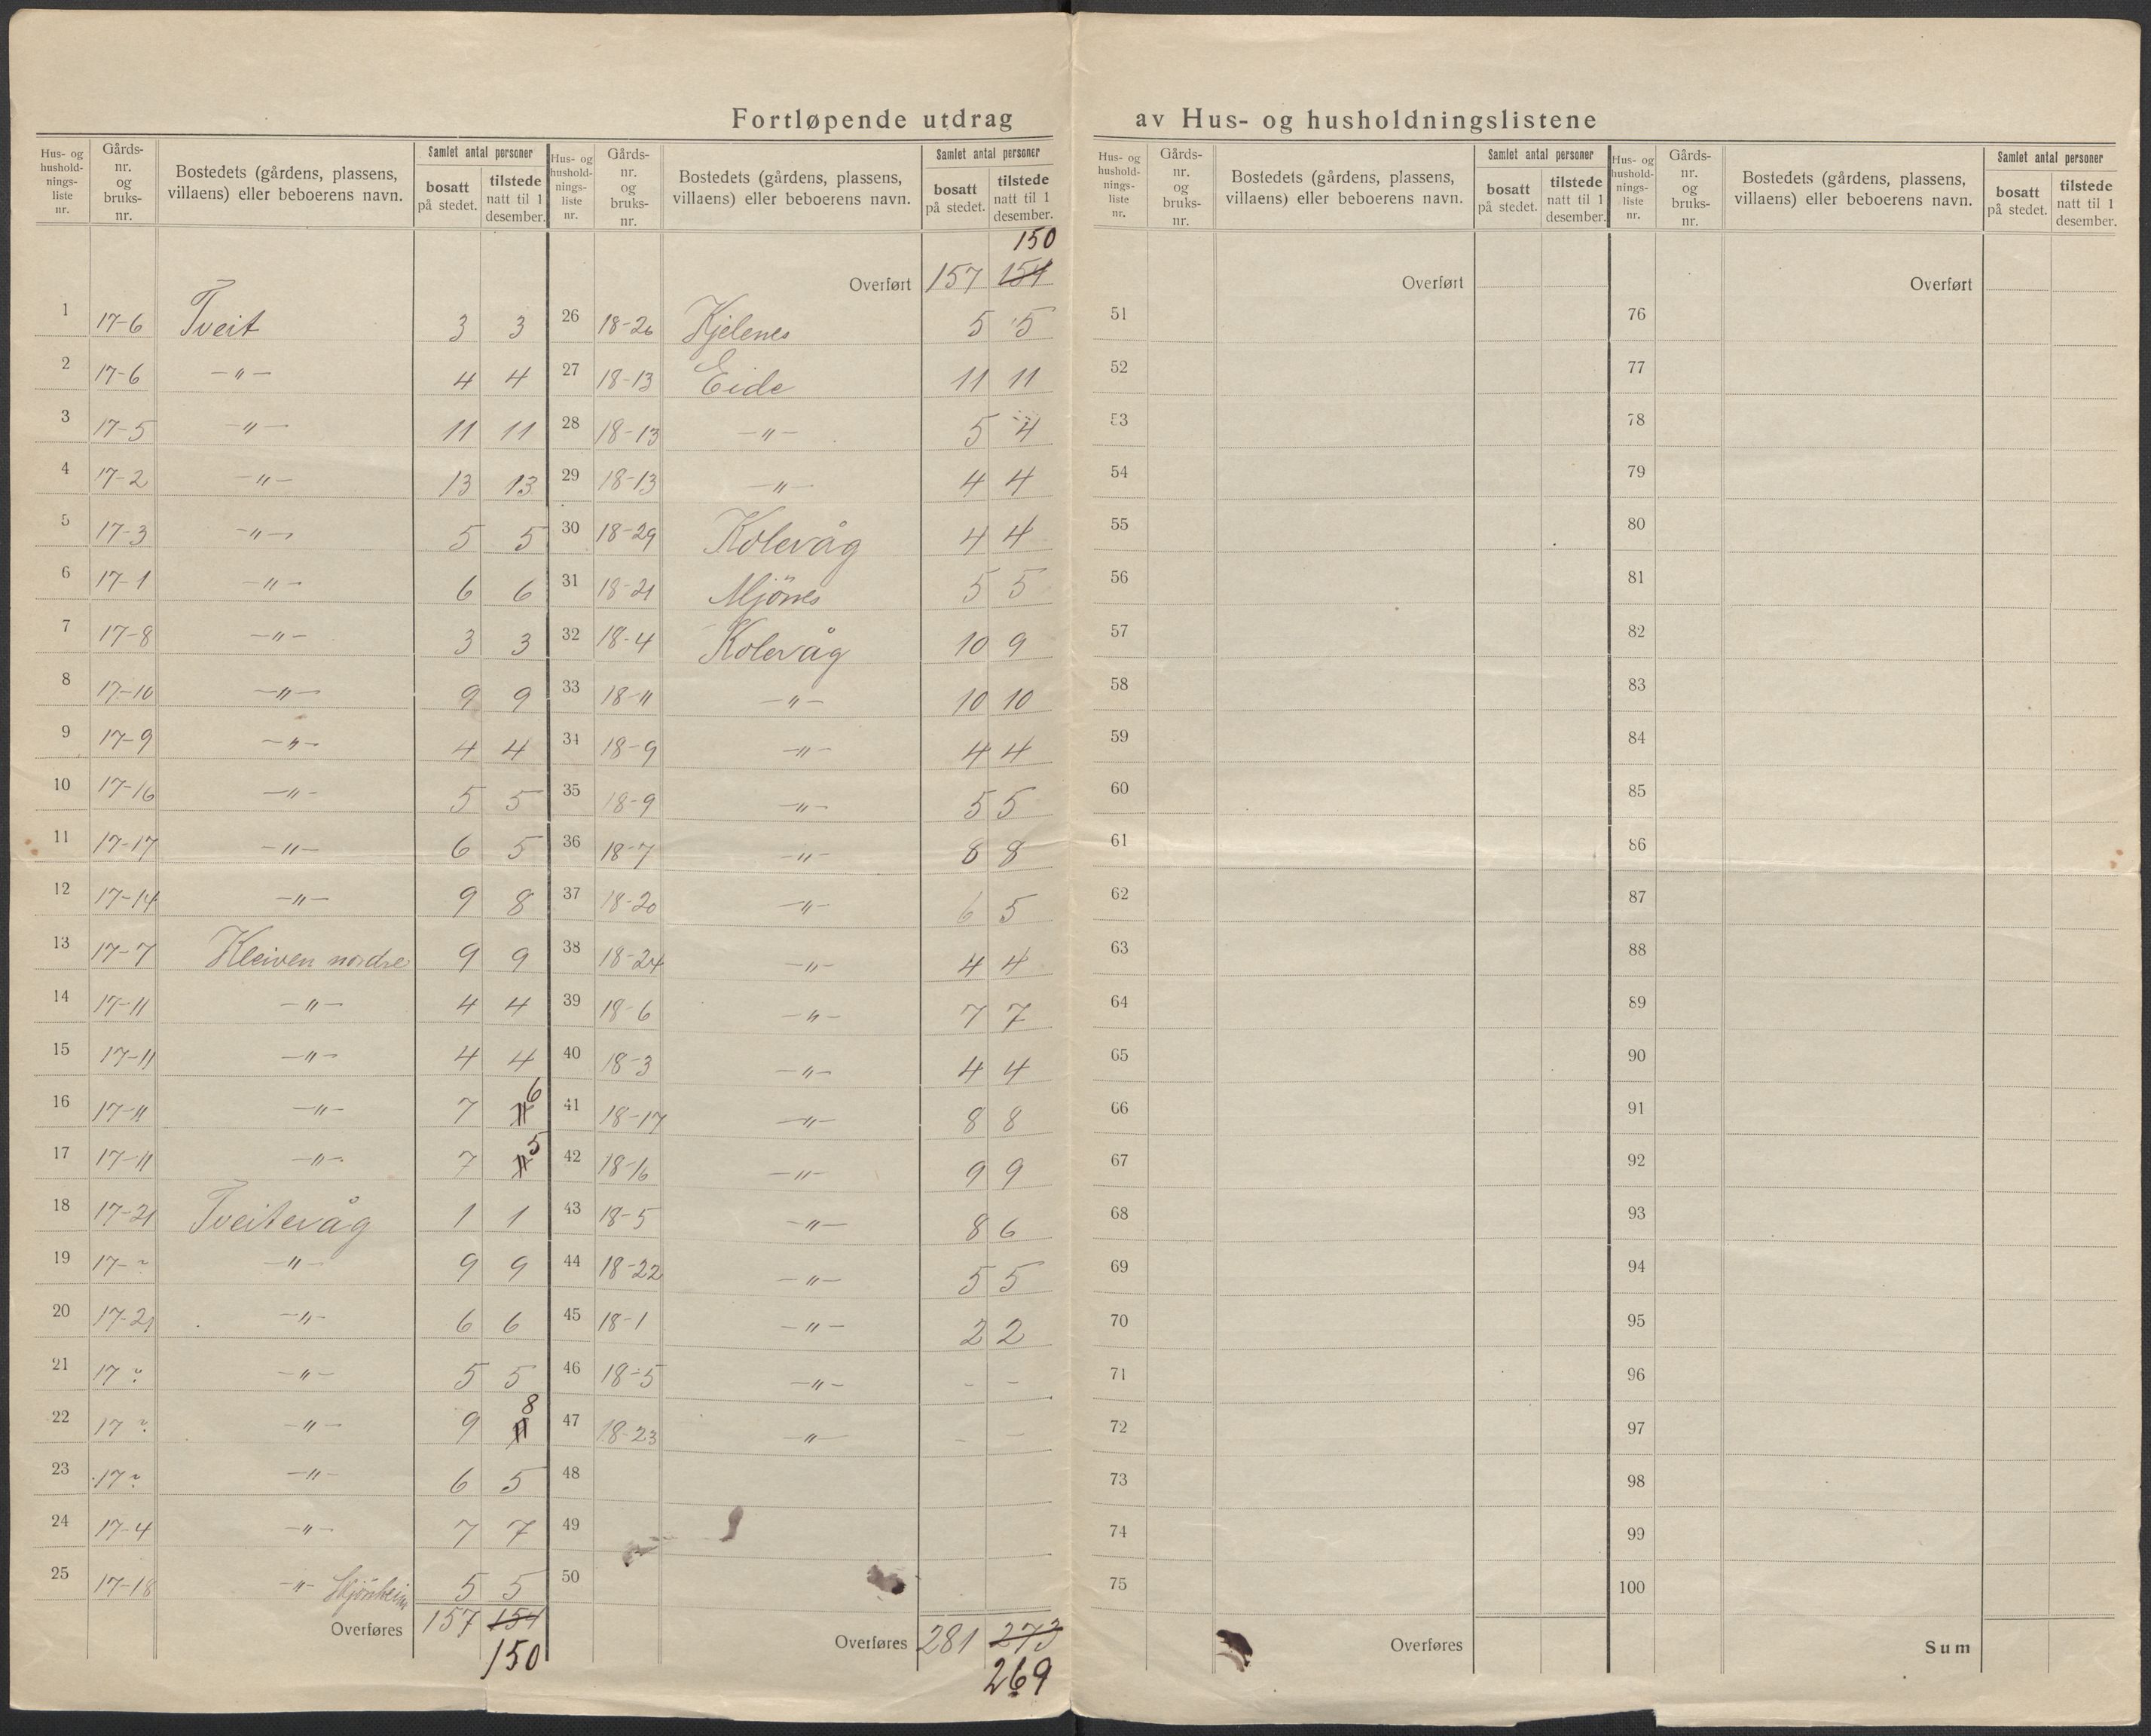 Fortløpende utdrag av Hus- og husholdningslistene
Hus- og hushold-nings-liste nr. Gårds-nr. og bruks-nr. Bostedets (gårdens, plassens, villaens) eller beboerens navn. Samlet antal personer bosatt på stedet. tilstede natt til 1 desember.
1 17-6 Tveit 3 3
2 17-6 -"- 4 4
3 17-5 -"- 11 11
4 17-2 -"- 13 13
5 17-3 -"- 5 5
6 17-1 -"- 6 6
7 17-8 -"- 3 3
8 17-10 -"- 9 9
9 17-9 -"- 4 4
10 17-16 -"- 5 5
11 17-17 -"- 6 5
12 17-14 -"- 9 8
13 17-7 Kleiven nordre 9 9
14 17-11 -"- 4 4
15 17-11 -"- 4 4
16 17-11 -"- 7 6
17 17-11 -"- 7 5
18 17-21 Tveitevåg 1 1
19 17-" -"- 9 9
20 17-21 -"- 6 6
21 17 " -"- 5 5
22 17 " -"- 9 8
23 17 " -"- 6 5
24 17-4 -"- 7 7
25 17-18 -"- 5 5
Overføres 157 154
150
Hus- og hushold-nings-liste nr. Gårds-nr. og bruks-nr. Bostedets (gårdens, plassens, villaens) eller beboerens navn. Samlet antal personer bosatt på stedet. tilstede natt til 1 desember.
150
Overført 157 154
26 18-26 Kjelenes 5 5
27 18-13 Eide 11 11
28 18-13 -"- 5 4
29 18-13 -"- 4 4
30 18-29 Kolevåg 4 4
31 18-21 Mjönes 5 5
32 18-4 Kolevåg 10 9
33 18-11 -"- 10 10
34 18-9 -"- 4 4
35 18-9 -"- 5 5
36 18-7 -"- 8 8
37 18-20 -"- 6 5
38 18-24 -"- 4 4
39 18-6 -"- 7 7
40 18-3 -"- 4 4
41 18-17 -"- 8 8
42 18-16 -"- 9 9
43 18-5 -"- 8 6
44 18-22 -"- 5 5
45 18-1 -"- 2 2
46 18-5 -"- - -
47 18-23 -"- - -
48
49
50
Overføres 281 273
269
Hus- og hushold-nings-liste nr. Gårds-nr. og bruks-nr. Bostedets (gårdens, plassens, villaens) eller beboerens navn. Samlet antal personer bosatt på stedet. tilstede natt til 1 desember.
Overført
51
52
53
54
55
56
57
58
59
60
61
62
63
64
65
66
67
68
69
70
71
72
73
74
75
Overføres
Hus- og hushold-nings-liste nr. Gårds-nr. og bruks-nr. Bostedets (gårdens, plassens, villaens) eller beboerens navn. Samlet antal personer bosatt på stedet. tilstede natt til 1 desember.
Overført
76
77
78
79
80
81
82
83
84
85
86
87
88
89
90
91
92
93
94
95
96
97
98
99
100
Sum